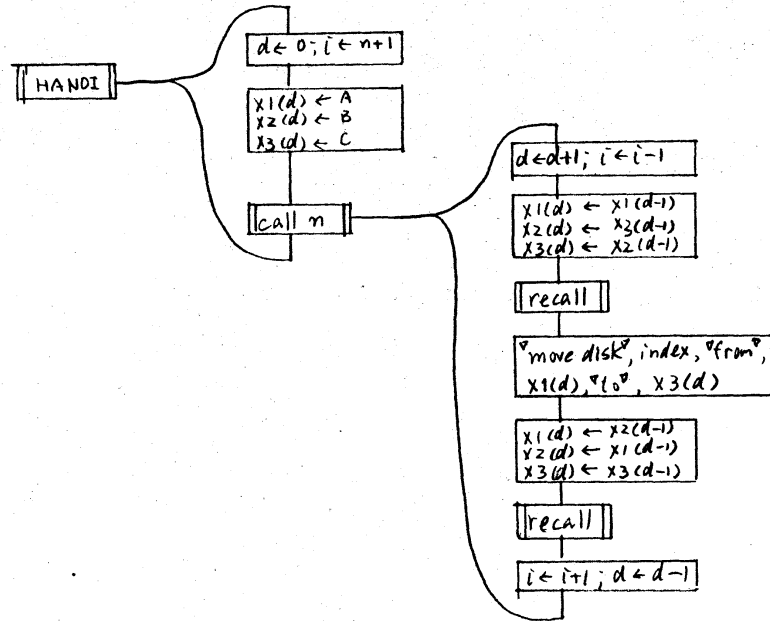 HANOI
d ← 0; i ← n+1
x1(d) ← A
x2(d) ← B
x3(d) ← C
call n
d ← d+1; i ← i-1
x1(d) ← x1(d-1)
x2(d) ← x3(d-1)
x3(d) ← x2(d-1)
recall
"move disk", index, "from",
x1(d), "to", x3(d)
x1(d) ← x2(d-1)
x2(d) ← x1(d-1)
x3(d) ← x3(d-1)
recall
i ← i+1; d ← d-1